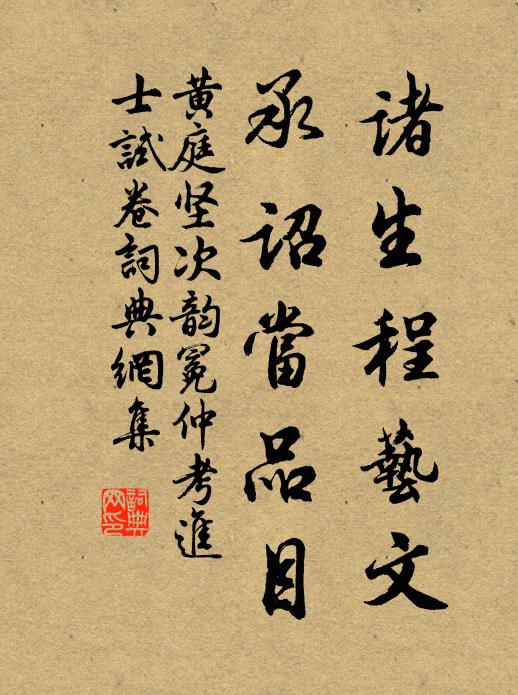 諸生程藝文
承詔當品目
黄庭坚次韵冕仲考進
士試卷詞典網集
詞典网印